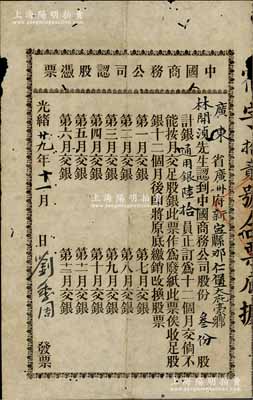 上海陽明拍賣
中國商務公司認股憑票
廣東省廣州府新寧縣那仁堡
林開渙先生認到中國商務公司股份叁份股
計銀通用銀陸拾員正訂爲十二個月交倘不
能按月交足股銀此票作爲廢紙此票俟收足股
銀十二個月後即將原底繳銷改換股票
第一月交銀 第七月交銀
第二月交銀 第八月交銀
第三月交銀 第九月交銀
第四月交銀 第十月交銀
第五月交銀 第十一月交銀
第六月交銀 第十二月交銀
光緒廿九年十一月 日 劉 發票
上海陽明拍賣